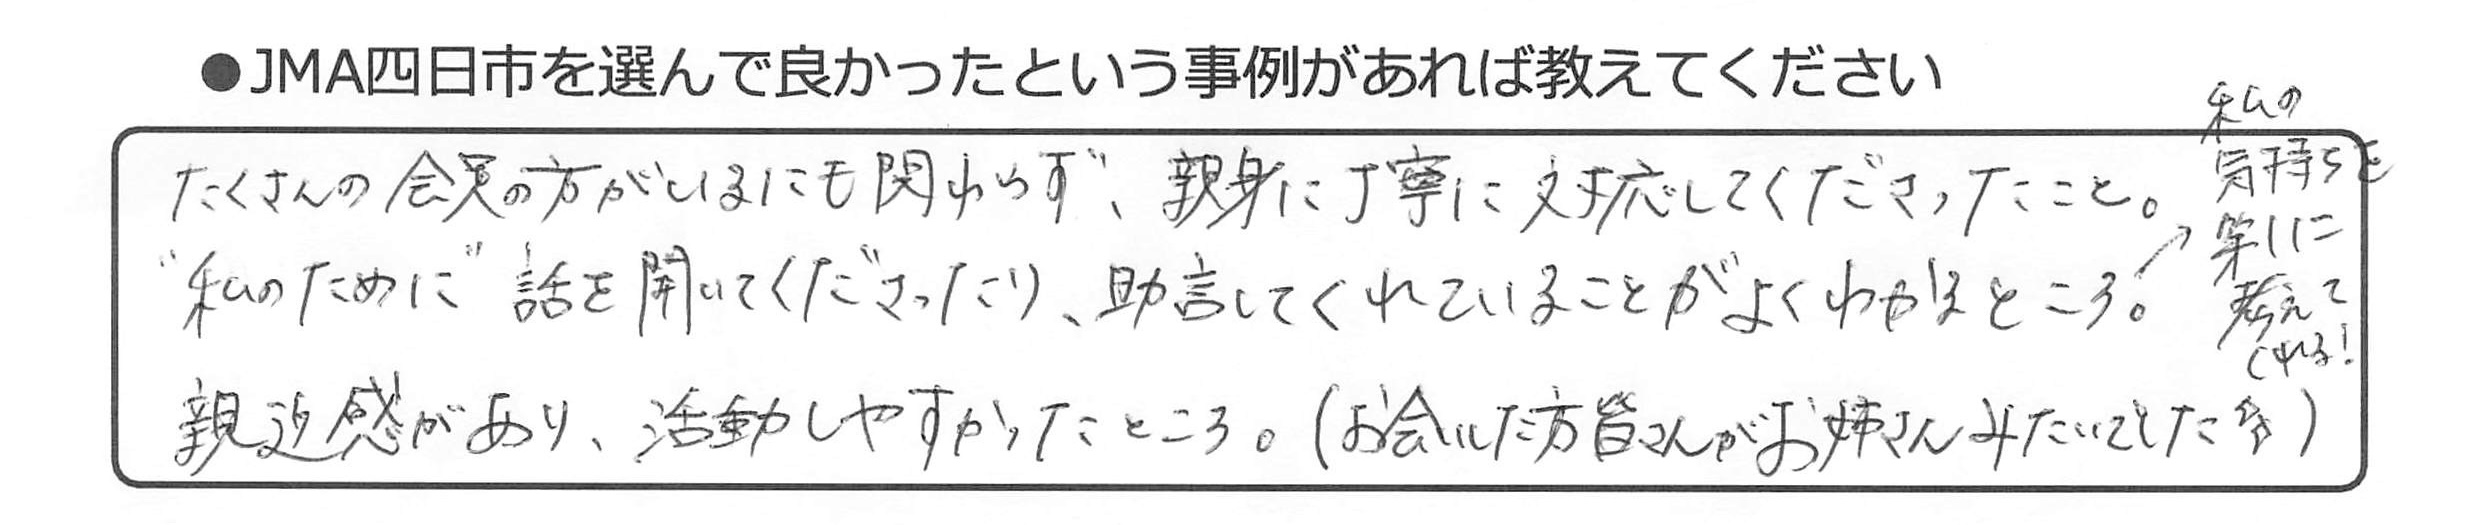 ●JMA四日市を選んで良かったという事例があれば教えてください
たくさんの会員の方がいるにも関わらず、親身に丁寧に対応してくださったこと。
"私のために"話を聞いてくださったり、助言してくれていることがよくわかるところ。
↗私の
気持ちを
第1に
考えて
くれる!
親近感があり、活動しやすかったところ。(お会いした方皆さんがお姉さんみたいでした)